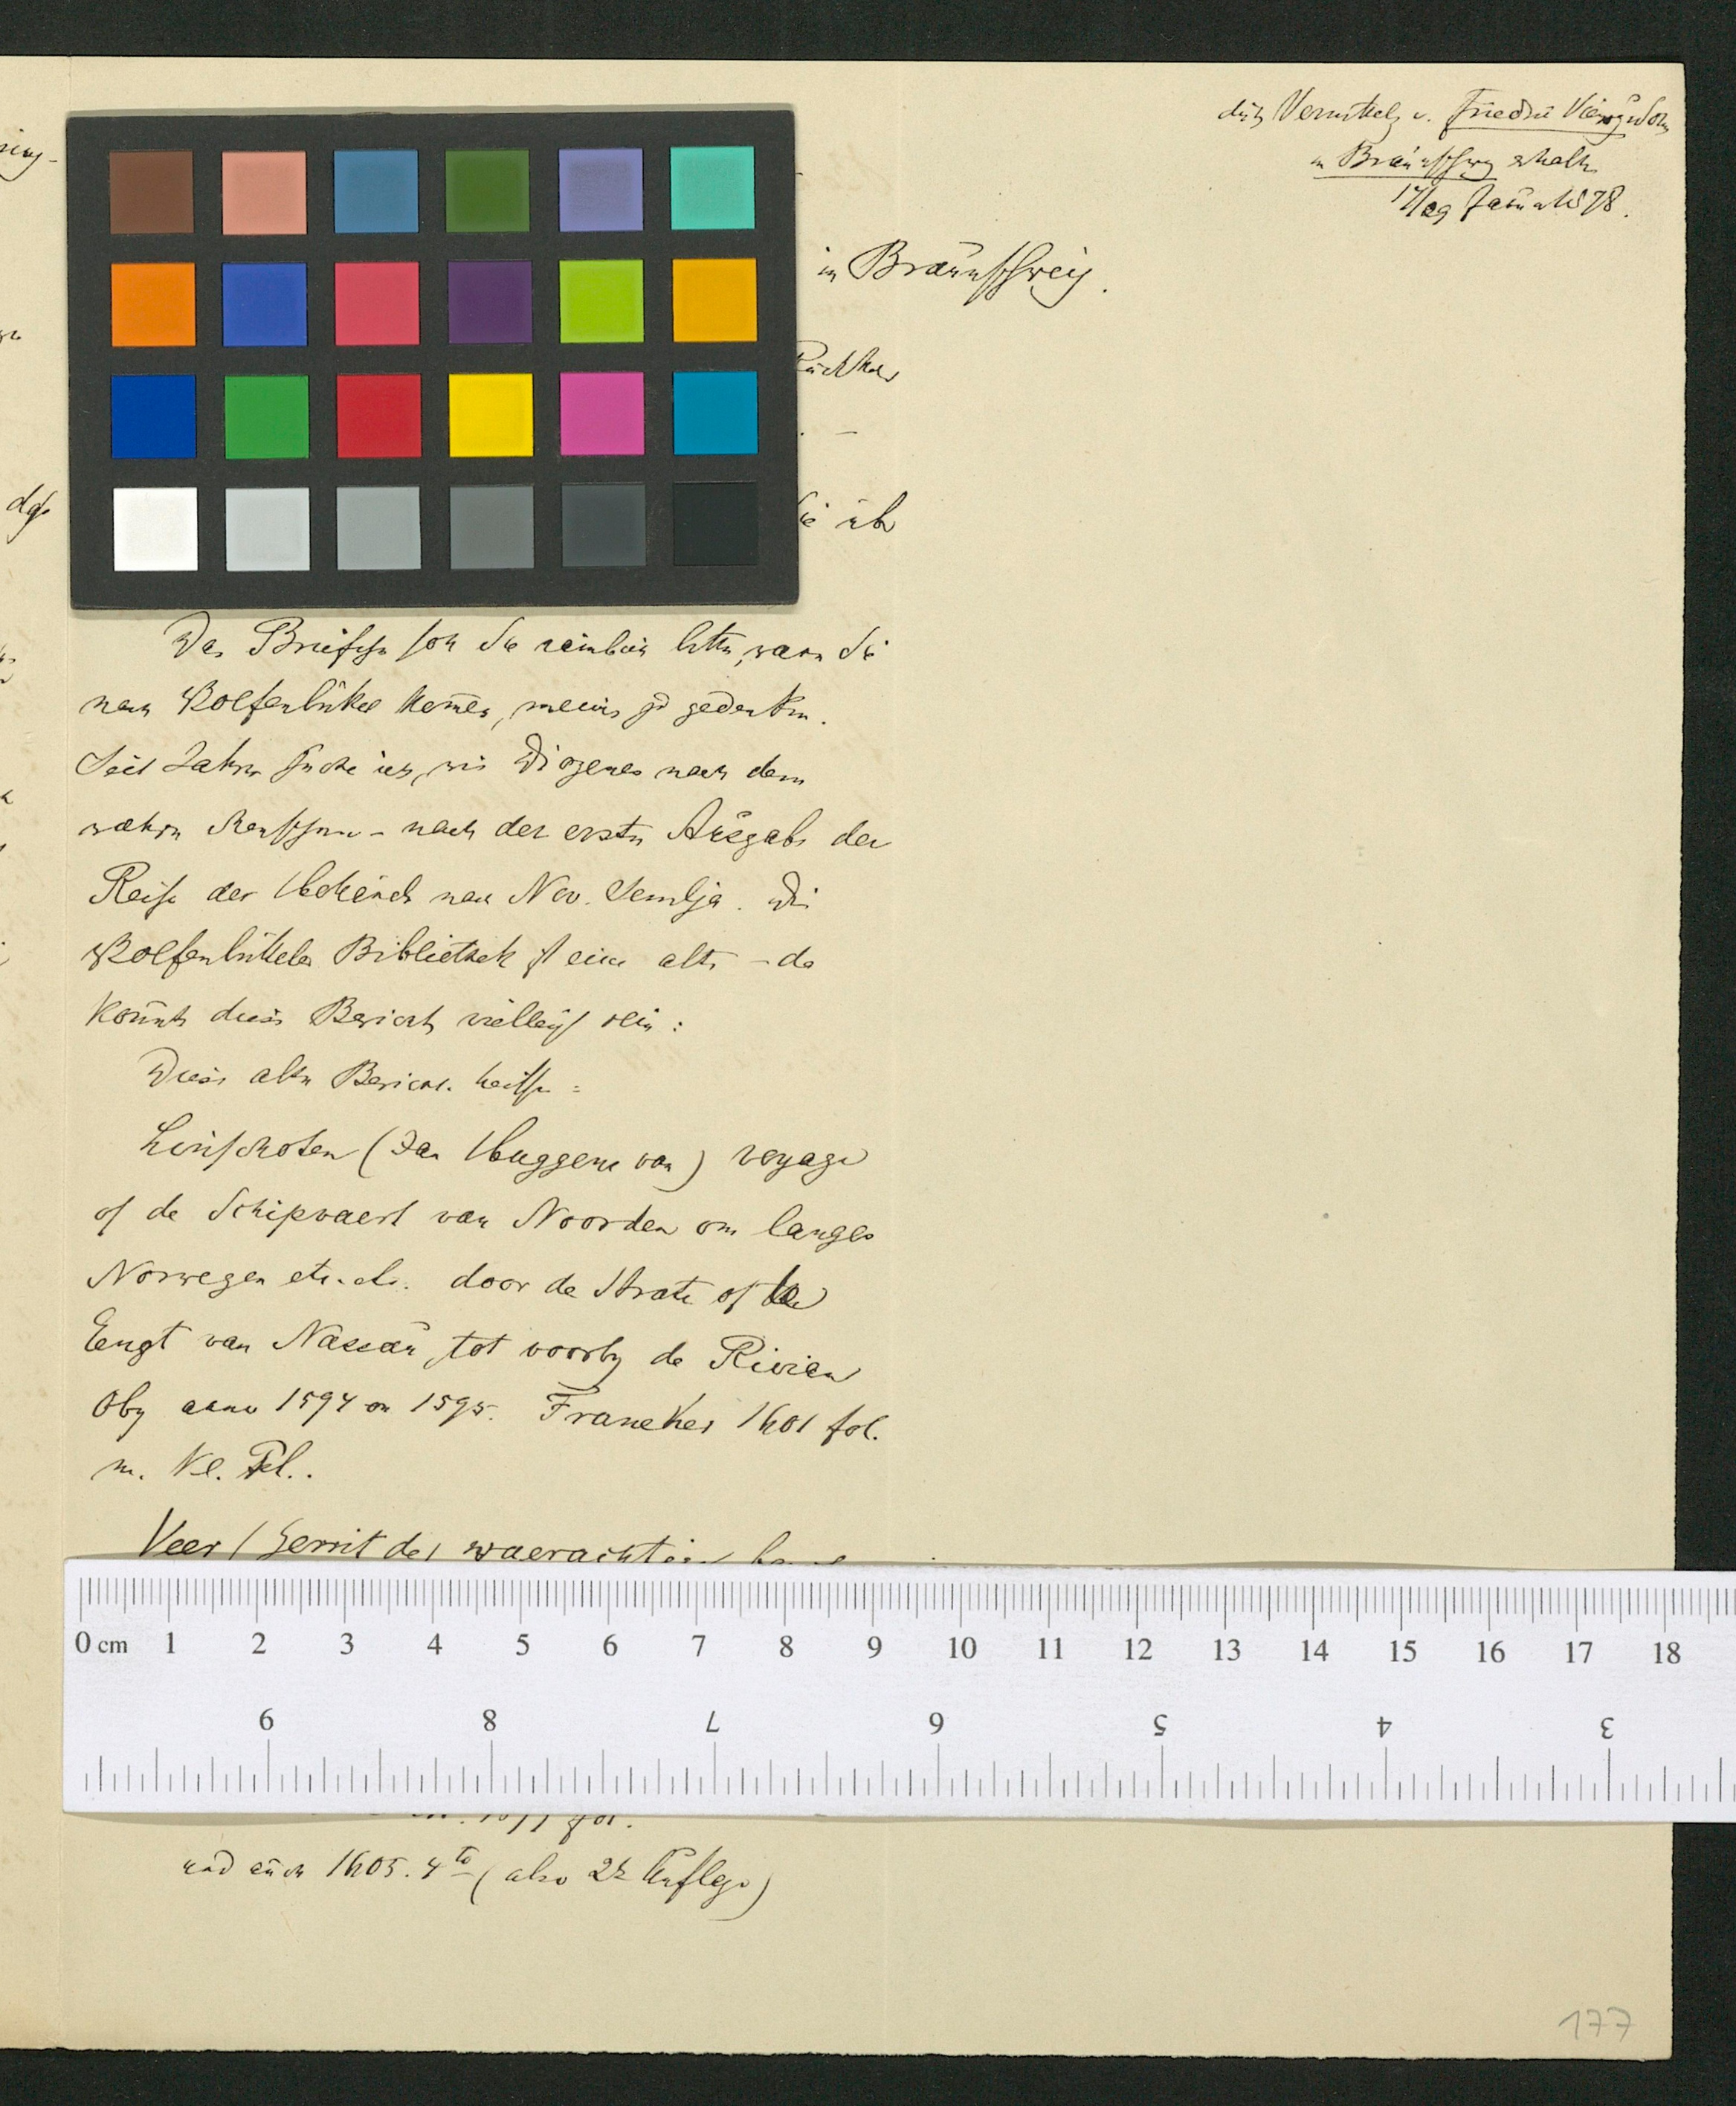 durch Vermittelg v. Friedr. Vieweg u Sohn
in Braunschweig erhalten
17/ Januar 1878.
in Braunschweig.
Sie üb
Das Briefchen soll Sie bitten, wenn Sie
nach Wolfenbüttel komen, meiner zu gedenken.
Seit Jahren suche ich, wie Diogenes nach dem
wahren Menschen - nach der ersten Ausgabe der
Reise der Holländ nach Nov. Semlja. Die
Wolfenbütteler Bibliothek ist eine alte - da
könnte dieser Bericht vielleicht sein:
Diese alten Berichte heissen:
Linschoten (Jan Huggens van) voyage
of de Schipvaert van Noorden om langes
Norwegen etc. etc. door de Strate of
Engt van Nassau, tot voorby de Rivier
Oby anno 1594 en 1595. Franeker 1601 fol.
m. Kl. Pl..
Veer (Gerrit de) waerachtige
und auch 1605. 4to (also 2te Auflage)
0 cm 1 2 3 4 5 6 7 8 9 10 11 12 13 14 15 16 17 18
9 8 7 6 5 4 3
177